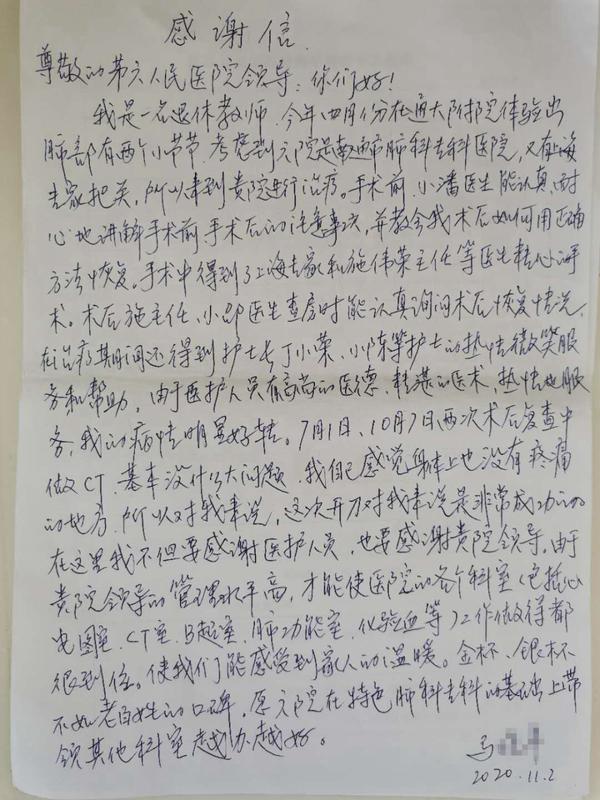 感谢信
尊敬的第六人民医院领导：你们好！
我是一名退休教师，今年四月份在通大附院体验出
肺部有两个小节节，考虑到六院是南通市肺科专科医院，又有上海
专家把关，所以来到贵院进行治疗。手术前，小潘医生能认真，耐
心地讲解手术前手术后的注意事项，并教会我术后如何用正确
方法恢复。手术中得到了上海专家和施伟荣主任等医生精心手
术。术后施主任、小邵医生查房时能认真询问术后恢复情况，
在治疗期间还得到护士长丁小荣、小陈等护士的热情微笑服
务和帮助，由于医护人员有高尚的医德，精湛的医术，热情地服
务，我的病情明显好转。7月1日、10月7日两次术后复查中
做CT，基本没什么大问题，我自己感觉身体上也没有疼痛
的地方，所以对我来说，这次开刀对我来说是非常成功的。
在这里我不但要感谢医护人员，也要感谢贵院领导，由于
贵院领导的管理水平高，才能使医院的各个科室（包括心
电图室、CT室、B超室、肺功能室、化验血等）工作做得都
很到位。使我们能感受到家人的温暖。金杯、银杯
不如老百姓的口碑，愿六院在特色肺科专科的基础上带
领其他科室越办越好。
马
2020.11.2